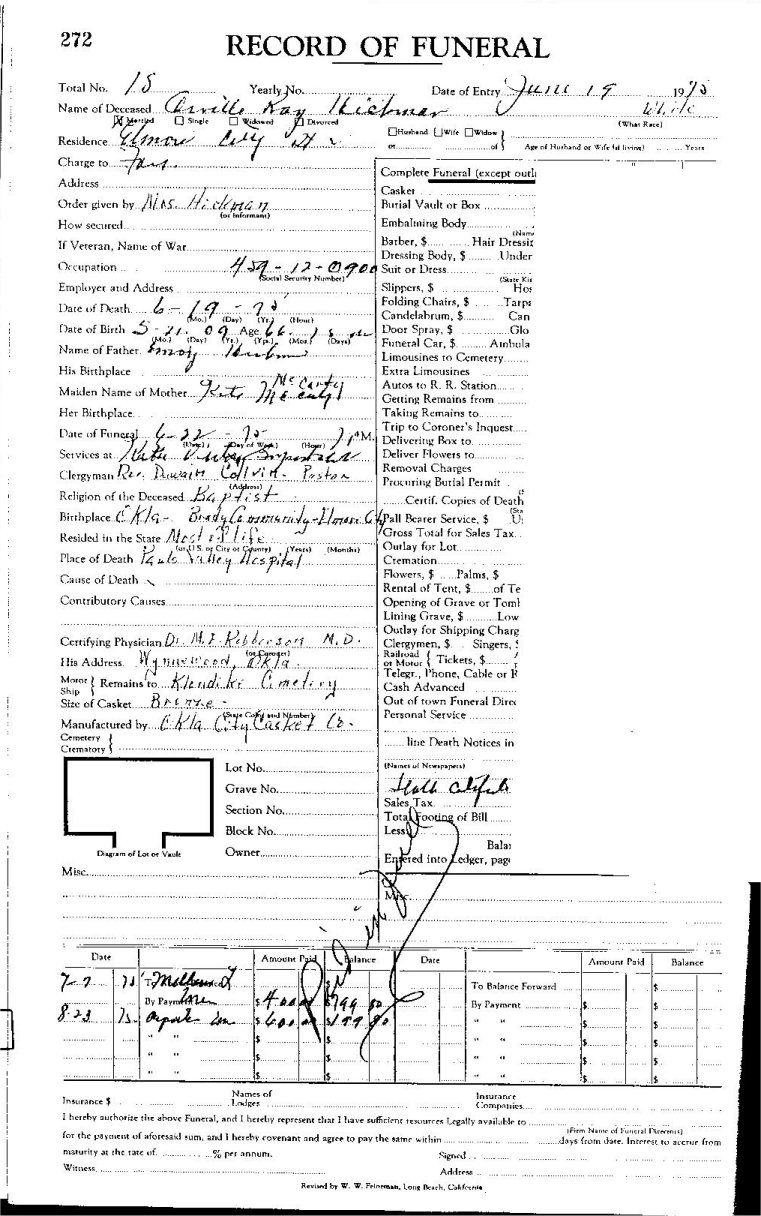 272
RECORD OF FUNERAL
Total No. 15 Yearly No. Date of Entry June 19 1975
Name of Deceased Orville Ray Hickman White
Married Single Widowed Divorced (What Race)
Residence Elmore City Husband Wife Widow
or of Age of Husband or Wife (if living) Years
Charge to
Complete Funeral (except outl
Address
Casket
Order given by Mrs. Hickman Burial Vault or Box
(or Informant)
How secured Embalming Body
(Name
If Veteran, Name of War Barber, $ Hair Dressin
Dressing Body, $ Under
Occupation 459-12-0900 Suit or Dress
(Social Security Number) (State Kin
Employer and Address Slippers, $ Hos
Date of Death 6-19-75 Folding Chairs, $ Tarps
(Mo.) (Day) (Yr.) (Hour) Candelabrum, $ Can
Date of Birth 5-21-09 Age 66 Door Spray, $ Glo
(Mo.) (Day) (Yr.) (Yrs.) (Mos.) (Days) Funeral Car, $ Ambula
Name of Father Hickman Limousines to Cemetery
His Birthplace Extra Limousines
Maiden Name of Mother Kate McCarty Autos to R. R. Station
McCarty Getting Remains from
Her Birthplace Taking Remains to
Date of Funeral 6-22-75 M. Trip to Coroner's Inquest
(Date) (Day of Week) (Hour) Delivering Box to
Services at Deliver Flowers to
Clergyman Rev. Dwain Colvin - Pastor Removal Charges
(Address) Procuring Burial Permit
Religion of the Deceased Baptist Certif. Copies of Death
Birthplace Okla - Brady Community - Elmore C Pall Bearer Service, $
Resided in the State Most of life Gross Total for Sales Tax
(or U.S. or City or County) (Years) (Months) Outlay for Lot
Place of Death Pauls Valley Hospital Cremation
Cause of Death Flowers, $ Palms, $
Rental of Tent, $ of Te
Contributory Causes Opening of Grave or Toml
Lining Grave, $ Low
Outlay for Shipping Charg
Certifying Physician Dr. M.E. Robberson M.D. Clergymen, $ Singers, $
(or Coroner) Railroad or Motor Tickets, $
His Address Wynnewood, Okla. Telegr., Phone, Cable or
Motor Ship Remains to Klondike Cemetery Cash Advanced
Size of Casket Bronze - Out of town Funeral Direc
(State Color and Number) Personal Service
Manufactured by Okla City Casket Co.
Cemetery
Crematory line Death Notices in
Lot No. (Names of Newspapers)
Grave No.
Section No. Sales Tax
Total Footing of Bill
Block No. Less
Owner Bala
Diagram of Lot or Vault Entered into Ledger, page
Misc.
Misc.
Date Amount Paid Balance Date Amount Paid Balance
7-7 75 To Balance Forward $
By Payment $ 400 $ 799 80 By Payment $ $
8-23 75 $ 600 $ 199 80 " " $ $
" " $ $ " " $ $
" " $ $ " " $ $
" " $ $ " " $ $
Insurance $ Names of Lodges Insurance Companies
I hereby authorize the above Funeral, and I hereby represent that I have sufficient resources Legally available to
(Firm Name of Funeral Directors)
for the payment of aforesaid sum, and I hereby covenant and agree to pay the same within days from date. Interest to accrue from
maturity at the rate of % per annum. Signed
Witness Address
Revised by W. W. Feineman, Long Beach, California